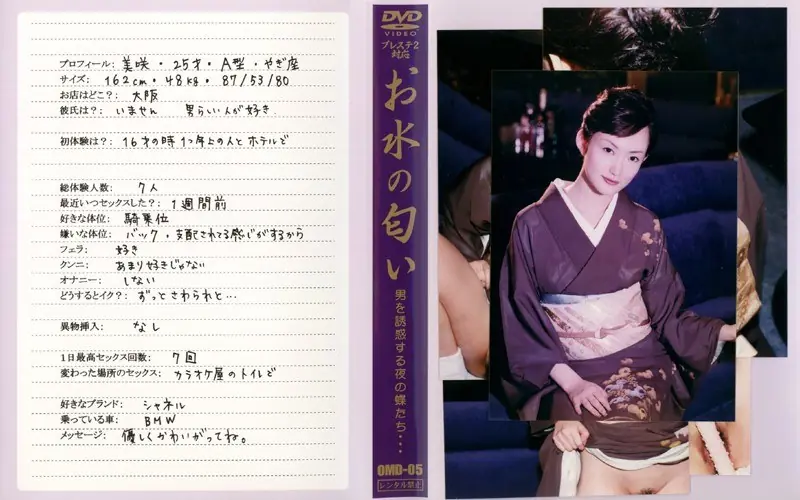 プロフィール: 美咲・25才・A型・やぎ座
サイズ: 162cm・48kg・87/53/80
お店はどこ?: 大阪
彼氏は?: いません 男らしい人が好き
総体験人数: 7人
最近いつセックスした?: 1週間前
好きな体位: 騎乗位
嫌いな体位: バック・支配されてる感じがするから
フェラ: 好き
クンニ: あまり好きじゃない
オナニー: しない
どうするとイク?: ずっとさわられと…
異物挿入: なし
1日最高セックス回数: 7回
変わった場所のセックス: カラオケ屋のトイレで
好きなブランド: シャネル
乗っている車: BMW
メッセージ: 優しくかわいがってね。
DVD
VIDEO
プレステ2
対応
お水の匂い
男を誘惑する夜の蝶たち・・・
OMD-05
レンタル禁止